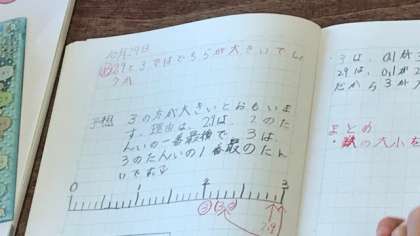 10月29日
2.9と3ではどちらが大きいでし
ょうか
予想 3の方が大きいとおもいま
す。理由は、2.9は、2のた
んいの一番最後で、3は、
3のたんいの1番最の
である
0 2 3
2.9
・3は、0.1が3
29は、0.1が2
だから3が
まとめ
・の大小を